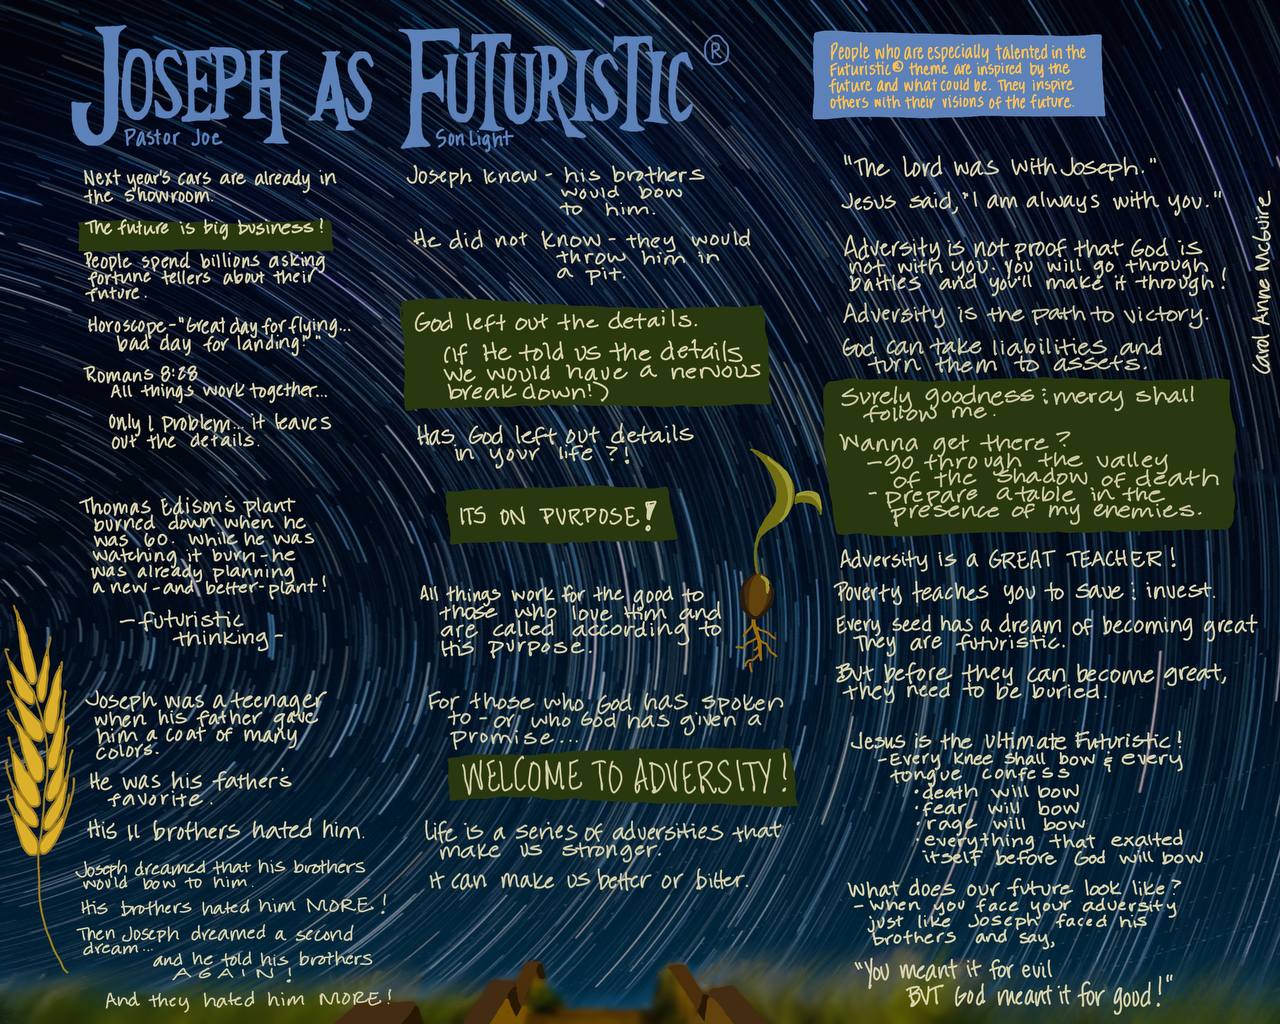 JOSEPH AS FUTURISTIC®
Pastor Joe
SonLight
People who are especially talented in the
Futuristic® theme are inspired by the
future and what could be. They inspire
others with their visions of the future.
Next year's cars are already in
the showroom.
The future is big business!
People spend billions asking
fortune tellers about their
future.
Horoscope-"Great day for flying...
bad day for landing!"
Romans 8:28
All things work together...
Only 1 problem... it leaves
out the details.
Thomas Edison's plant
burned down when he
was 60. While he was
watching it burn-he
was already planning
a new-and better-plant!
-futuristic
thinking-
Joseph was a teenager
when his father gave
him a coat of many
colors.
He was his father's
favorite.
His 11 brothers hated him.
Joseph dreamed that his brothers
would bow to him.
His brothers hated him MORE!
Then Joseph dreamed a second
dream...
and he told his brothers
AGAIN!
And they hated him MORE!
Joseph knew - his brothers
would bow
to him.
He did not know - they would
throw him in
a pit.
God left out the details.
(if He told us the details
we would have a nervous
breakdown!)
Has God left out details
in your life?!
ITS ON PURPOSE!
All things work for the good to
those who love Him and
are called according to
His purpose.
For those who God has spoken
to - or who God has given a
promise...
WELCOME TO ADVERSITY!
Life is a series of adversities that
make us stronger.
It can make us better or bitter.
"The Lord was with Joseph."
Jesus said, "I am always with you."
Adversity is not proof that God is
not with you. You will go through
battles and you'll make it through!
Adversity is the path to victory.
God can take liabilities and
turn them to assets.
Surely goodness & mercy shall
follow me.
Wanna get there?
-go through the valley
of the shadow of death
- prepare a table in the
presence of my enemies.
Adversity is a GREAT TEACHER!
Poverty teaches you to save & invest.
Every seed has a dream of becoming great
They are futuristic.
But before they can become great,
they need to be buried.
Jesus is the Ultimate Futuristic!
-Every knee shall bow & every
tongue confess
•death will bow
•fear will bow
•rage will bow
•everything that exalted
itself before God will bow
What does our future look like?
-When you face your adversity
just like Joseph faced his
brothers and say,
"You meant it for evil
BUT God meant it for good!"
Carol Anne McGuire